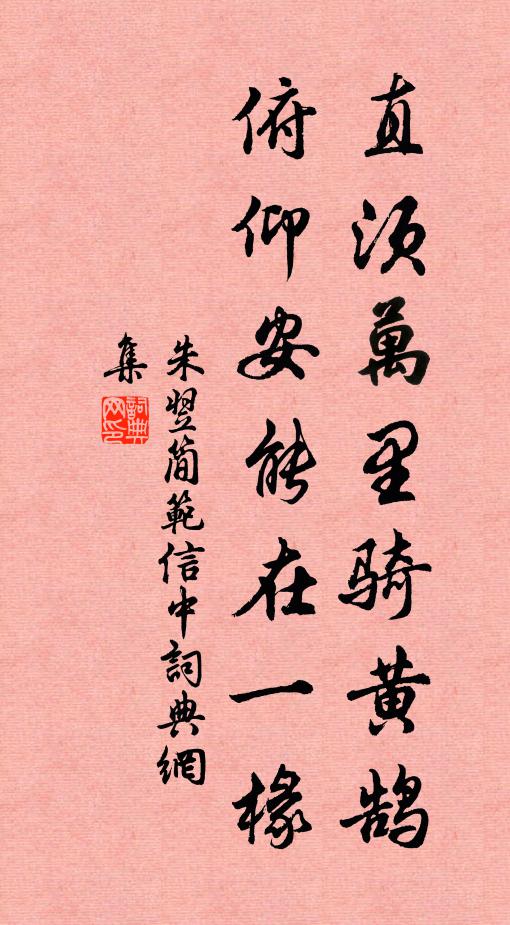 直须萬里騎黄鹄
俯仰安能在一椽
朱翌簡範信中詞典網
集
詞典
网印